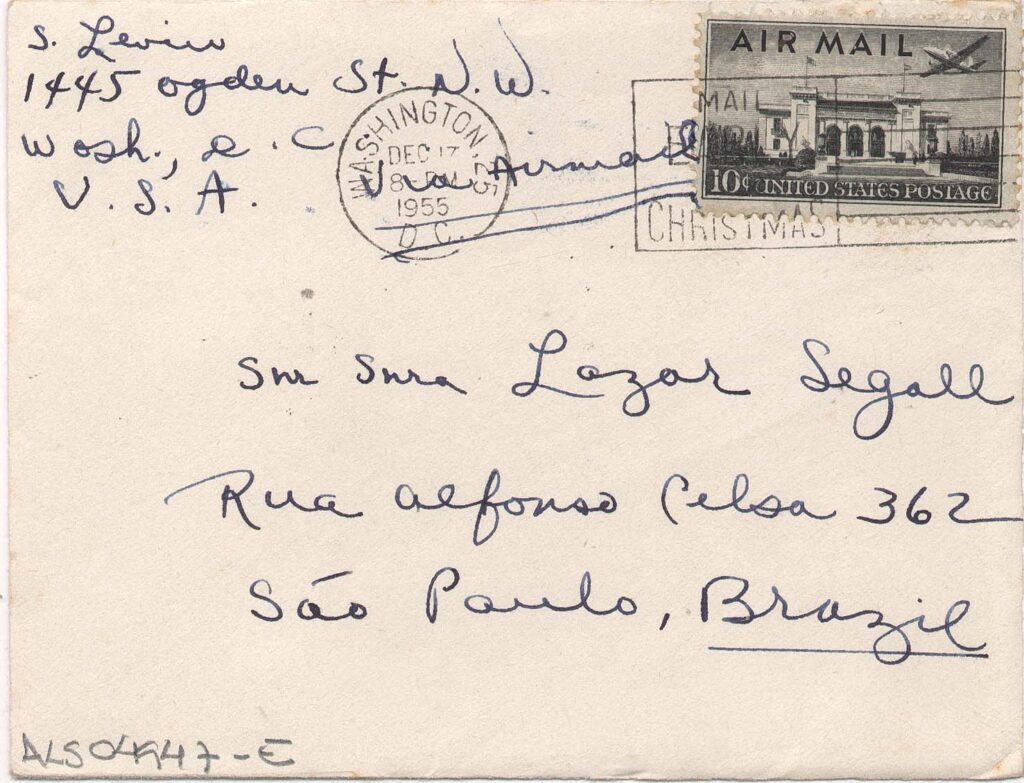 S. Levin
1445 Ogden St. N.W.
Wash., D.C.
U.S.A.
Via Airmail
WASHINGTON 25
DEC 17
8 PM
1955
D.C.
MAIL
CHRISTMAS
AIR MAIL
10¢ UNITED STATES POSTAGE
Snr Snra Lazar Segall
Rua Alfonso Celsa 362
São Paulo, Brazil
ALS04947-E